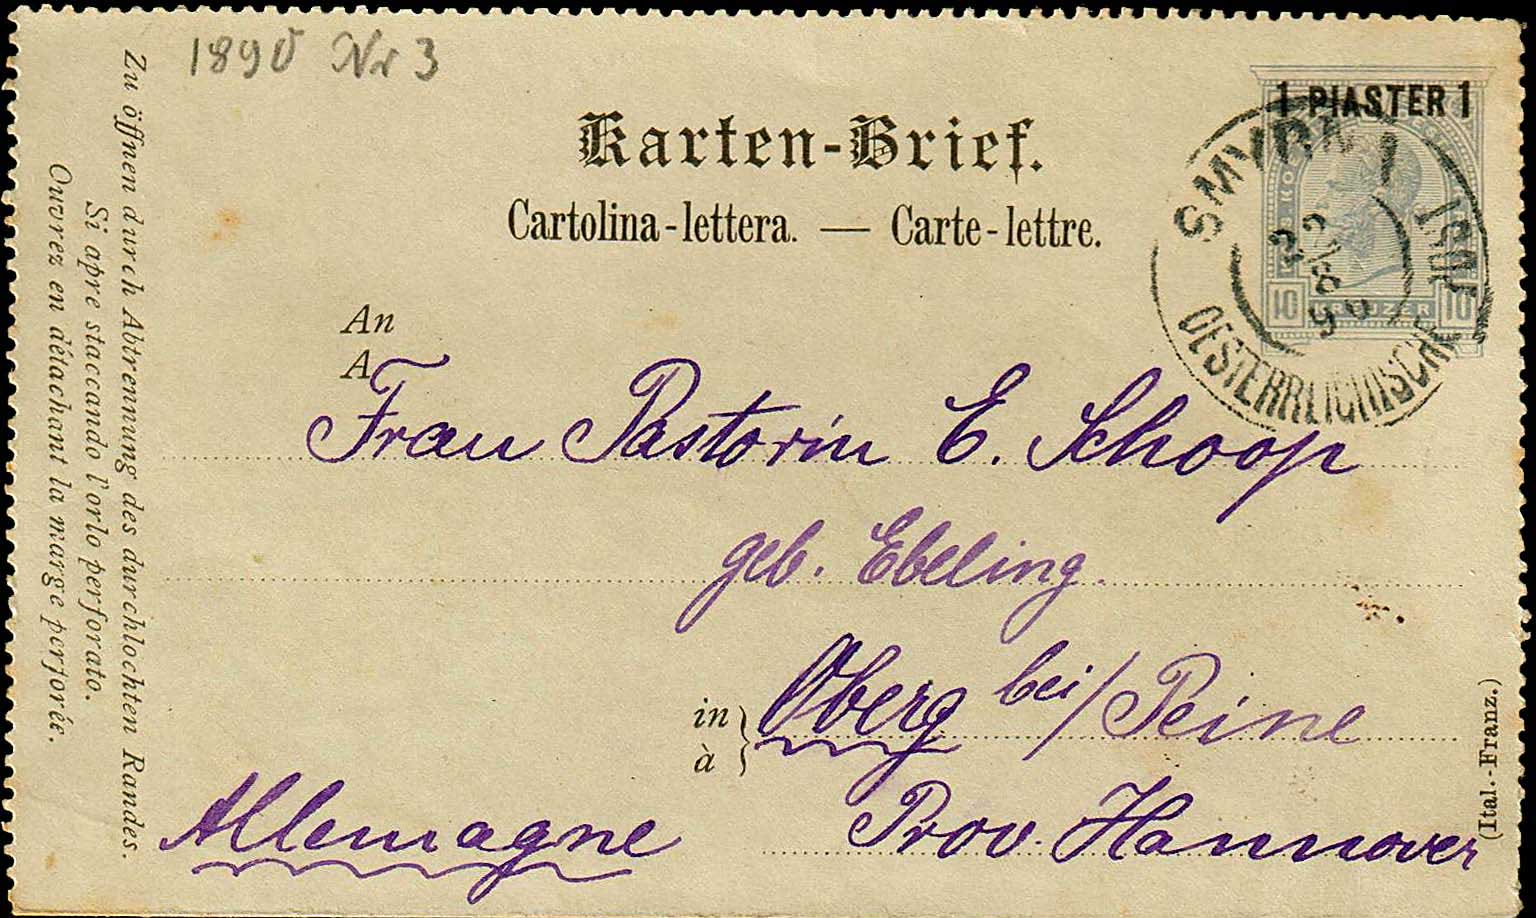 1890 Nr 3
1 PIASTER 1
Karten-Brief.
Cartolina-lettera. — Carte-lettre.
SMYRNA
22
8
OESTERREICHISCHE
10 KREUZER 10
An
A
Frau Pastorin E. Schoop
geb. Ebeling.
in
à
Oberg bei/Peine
Prov. Hannover
Allemagne
Zu öffnen durch Abtrennung des durchlochten Randes.
Si apre staccando l'orlo perforato.
Ouvrez en détachant la marge perforée.
(Ital.-Franz.)